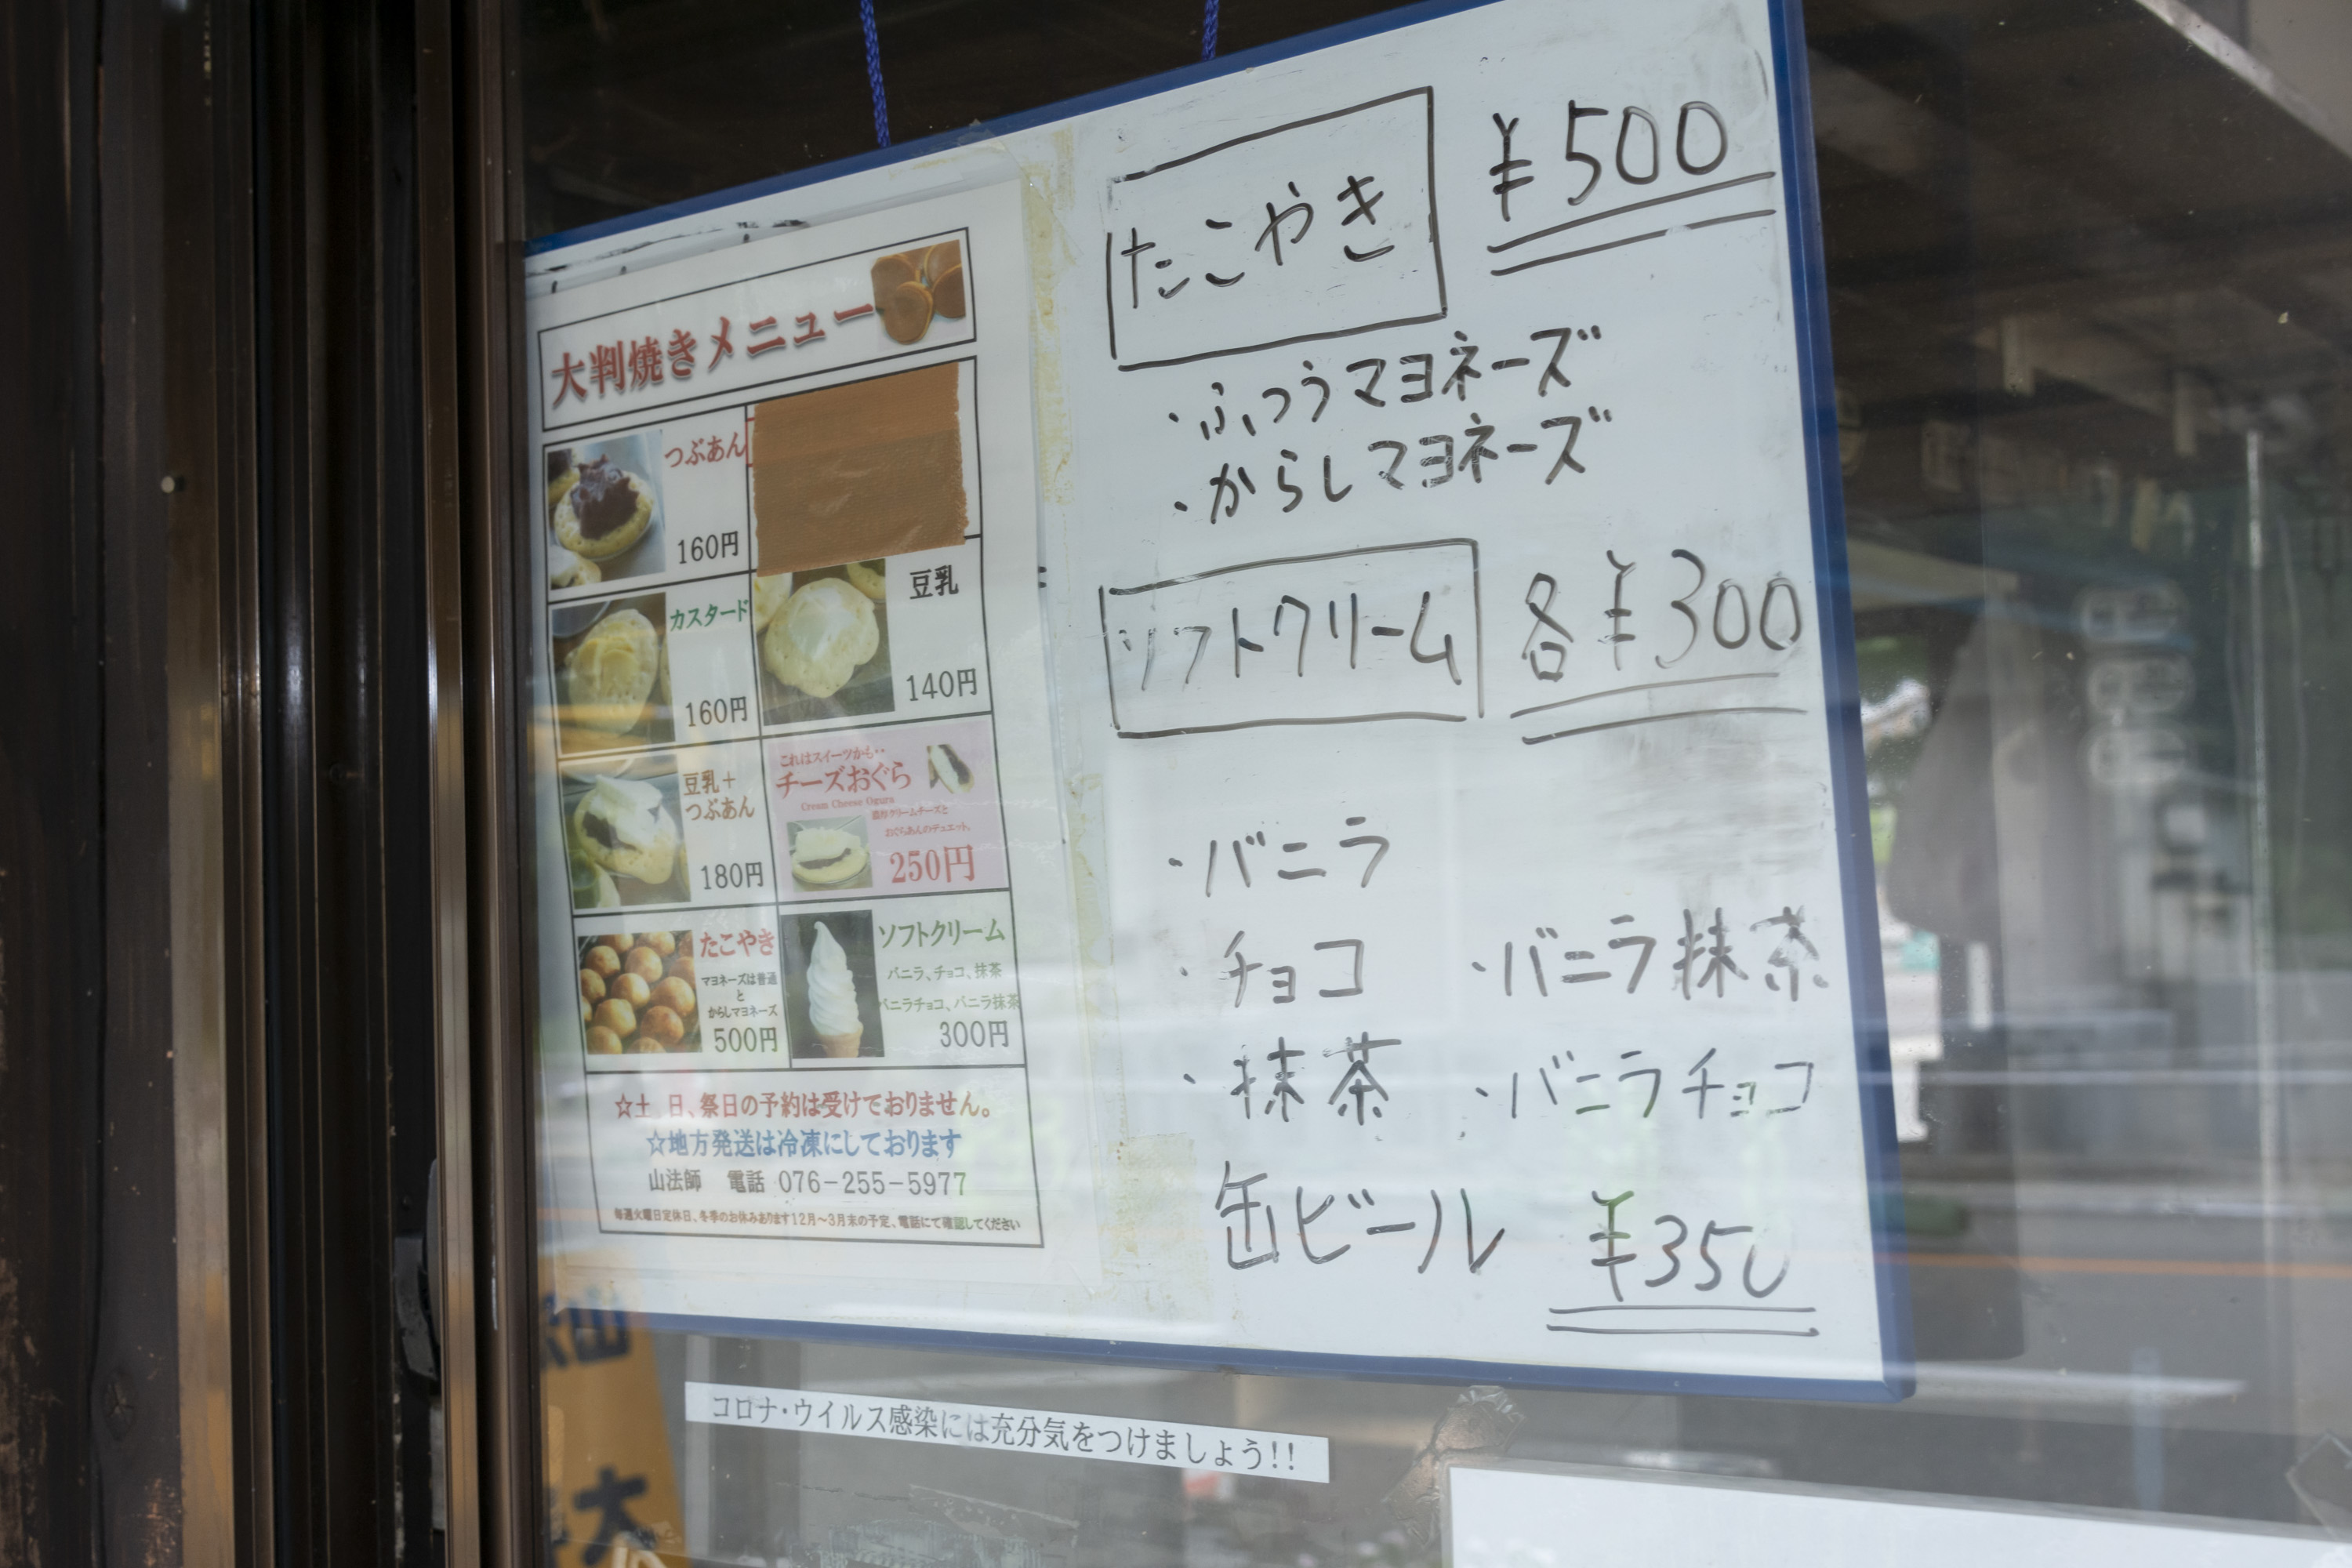 大判焼きメニュー
つぶあん
160円
カスタード
160円
豆乳
140円
豆乳+
つぶあん
180円
これはスイーツかも‥
チーズおぐら
Cream Cheese Ogura
濃厚クリームチーズと
おぐらあんのデュエット。
250円
たこやき
マヨネーズは普通
と
からしマヨネーズ
500円
ソフトクリーム
バニラ、チョコ、抹茶
バニラチョコ、バニラ抹茶
300円
☆土、日、祭日の予約は受けておりません。
☆地方発送は冷凍にしております
山法師 電話 076-255-5977
毎週火曜日定休日、冬季のお休みあります12月~3月末の予定、電話にて確認してください
たこやき ¥500
・ふつうマヨネーズ
・からしマヨネーズ
ソフトクリーム 各¥300
・バニラ
・チョコ ・バニラ抹茶
・抹茶 ・バニラチョコ
缶ビール ¥350
コロナ・ウイルス感染には充分気をつけましょう!!
山
大